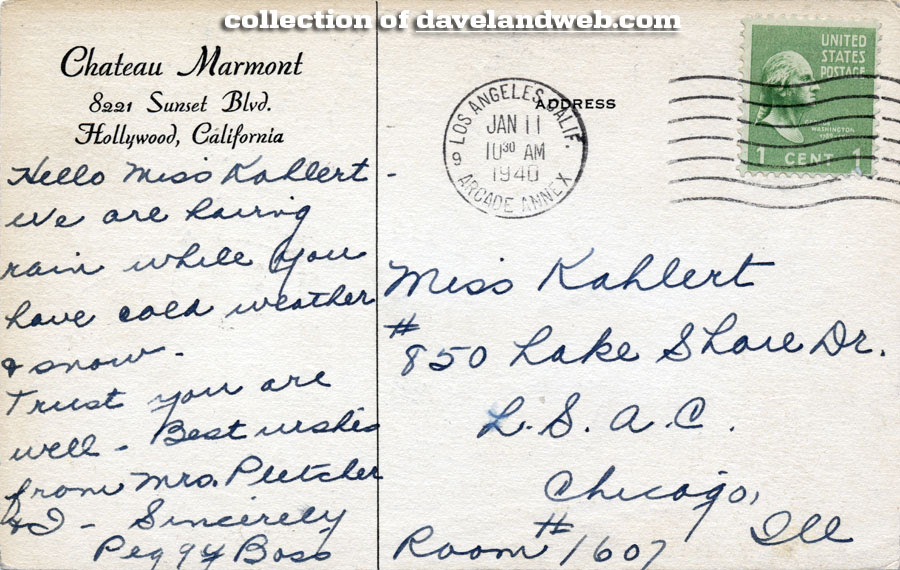 collection of davelandweb.com
Chateau Marmont
8221 Sunset Blvd.
Hollywood, California
Hello Miss Kahlert -
We are having
rain while you
have cold weather
& snow -
Trust you are
well - Best wishes
from Mrs. Pletcher
& I - Sincerely
Peggy Boss
ADDRESS
LOS ANGELES, CALIF.
JAN 11
10 30 AM
1940
9
ARCADE ANNEX
UNITED
STATES
POSTAGE
WASHINGTON
1 CENT 1
Miss Kahlert
#850 Lake Shore Dr.
L.S.A.C.
Chicago,
Ill
Room #1607